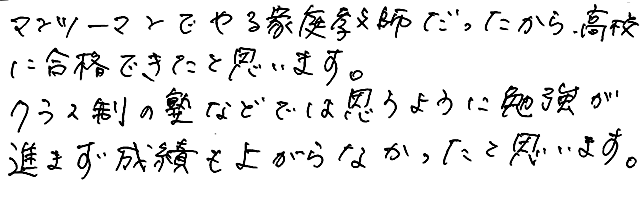 マンツーマンでやる家庭教師だったから、高校
に合格できたと思います。
クラス制の塾などでは思うように勉強が
進まず成績も上がらなかったと思います。